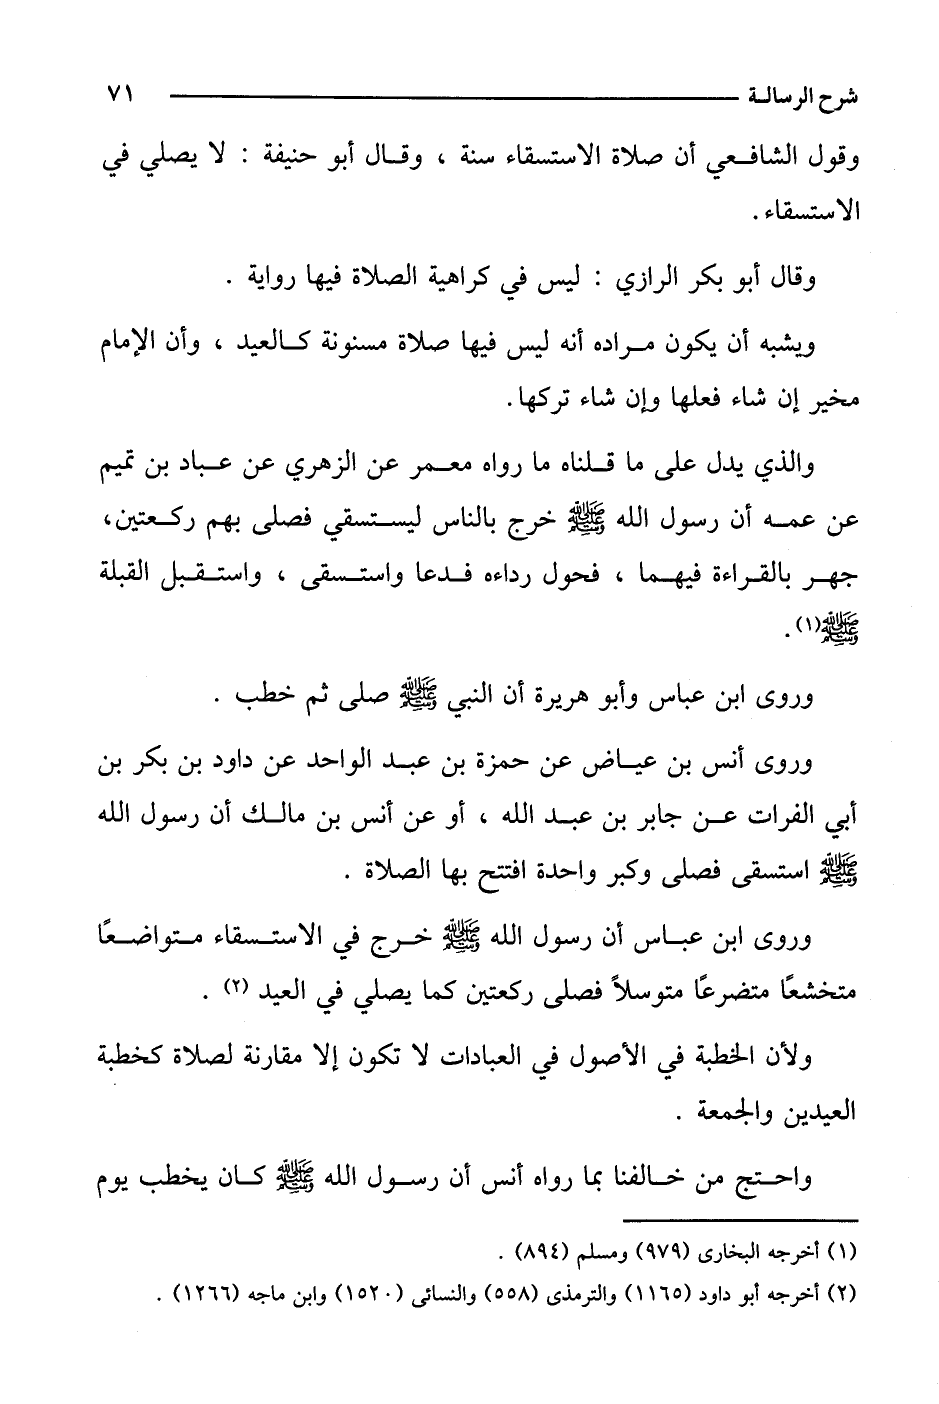 شرح الرسالة ٧١
وقول الشافعي أن صلاة الاستسقاء سنة ، وقال أبو حنيفة : لا يصلي في
الاستسقاء .
وقال أبو بكر الرازي : ليس في كراهية الصلاة فيها رواية .
ويشبه أن يكون مراده أنه ليس فيها صلاة مسنونة كالعيد ، وأن الإمام
مخير إن شاء فعلها وإن شاء تركها .
والذي يدل على ما قلناه ما رواه معمر عن الزهري عن عباد بن تميم
عن عمه أن رسول الله ﷺ خرج بالناس ليستسقي فصلى بهم ركعتين ،
جهر بالقراءة فيهما ، فحول رداءه فدعا واستسقى ، واستقبل القبلة
ﷺ(١) .
وروى ابن عباس وأبو هريرة أن النبي ﷺ صلى ثم خطب .
وروى أنس بن عياض عن حمزة بن عبد الواحد عن داود بن بكر بن
أبي الفرات عن جابر بن عبد الله ، أو عن أنس بن مالك أن رسول الله
ﷺ استسقى فصلى وكبر واحدة افتتح بها الصلاة .
وروى ابن عباس أن رسول الله ﷺ خرج في الاستسقاء متواضعًا
متخشعًا متضرعًا متوسلاً فصلى ركعتين كما يصلي في العيد (٢) .
ولأن الخطبة في الأصول في العبادات لا تكون إلا مقارنة لصلاة كخطبة
العيدين والجمعة .
واحتج من خالفنا بما رواه أنس أن رسول الله ﷺ كان يخطب يوم
(١) أخرجه البخارى (٩٧٩) ومسلم (٨٩٤) .
(٢) أخرجه أبو داود (١١٦٥) والترمذى (٥٥٨) والنسائى (١٥٢٠) وابن ماجه (١٢٦٦) .